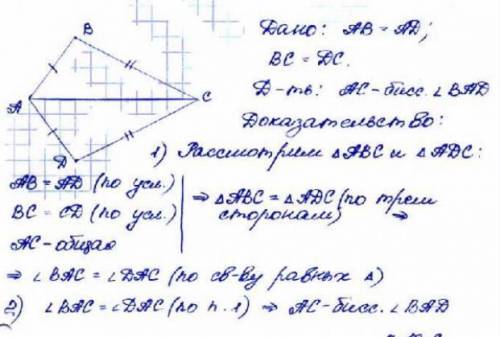 B
A
C
D
Дано: AB = AD;
BC = DC.
Д-ть: AC-бисс. ∠BAD
Доказательство:
1) Рассмотрим △ABC и △ADC:
AB = AD (по усл.)
BC = CD (по усл.)
AC-общая
⇒ △ABC = △ADC (по трем
сторонам) ⇒
⇒ ∠BAC = ∠DAC (по св-ву равных △)
2) ∠BAC = ∠DAC (по п. 1) ⇒ AC-бисс. ∠BAD